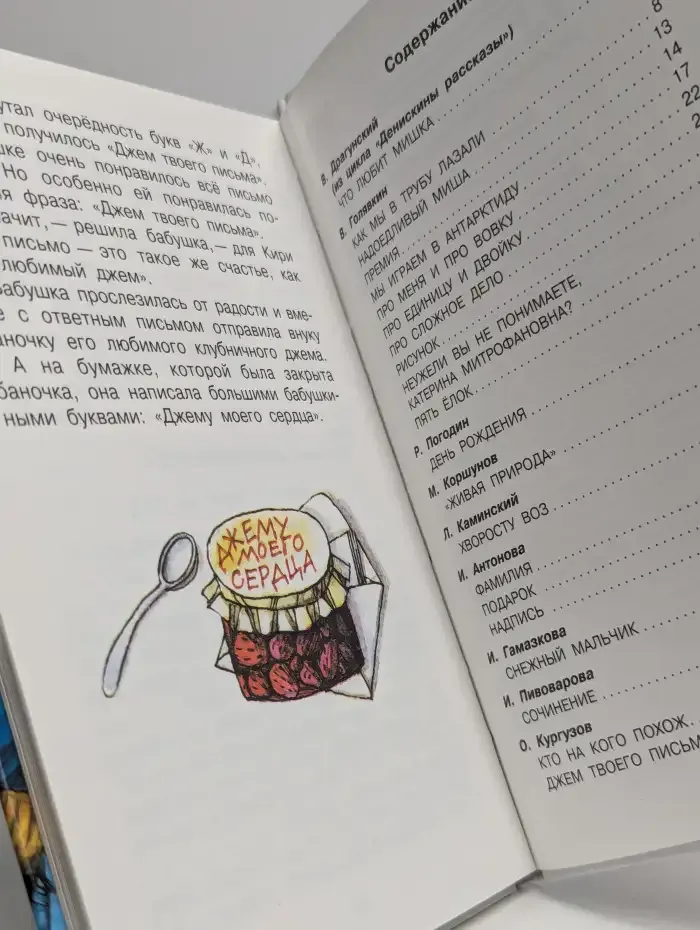 очерёдность букв «Ж» и «Д».
получилось «Джем твоего письма».
очень понравилось всё письмо
Но особенно ей понравилась по-
фраза: «Джем твоего письма».
решила бабушка,— для Кири
письмо — это такое же счастье, как
любимый джем».
Бабушка прослезилась от радости и вме-
с ответным письмом отправила внуку
баночку его любимого клубничного джема.
А на бумажке, которой была закрыта
баночка, она написала большими бабушки-
ными буквами: «Джему моего сердца».
ДЖЕМУ
МОЕГО
СЕРДЦА
В. Драгунский
(из цикла «Денискины рассказы»)
ЧТО ЛЮБИТ МИШКА
В. Голявкин
КАК МЫ В ТРУБУ ЛАЗАЛИ
НАДОЕДЛИВЫЙ МИША
ПРЕМИЯ
МЫ ИГРАЕМ В АНТАРКТИДУ
ПРО МЕНЯ И ПРО ВОВКУ
ПРО ЕДИНИЦУ И ДВОЙКУ
ПРО СЛОЖНОЕ ДЕЛО
РИСУНОК
НЕУЖЕЛИ ВЫ НЕ ПОНИМАЕТЕ,
КАТЕРИНА МИТРОФАНОВНА?
ПЯТЬ ЁЛОК
Р. Погодин
ДЕНЬ РОЖДЕНИЯ
М. Коршунов
«ЖИВАЯ ПРИРОДА»
Л. Каминский
ХВОРОСТУ ВОЗ
И. Антонова
ФАМИЛИЯ
ПОДАРОК
НАДПИСЬ
И. Гамазкова
СНЕЖНЫЙ МАЛЬЧИК
И. Пивоварова
СОЧИНЕНИЕ
О. Кургузов
КТО НА КОГО ПОХОЖ
ДЖЕМ ТВОЕГО
8
13
14
17
22